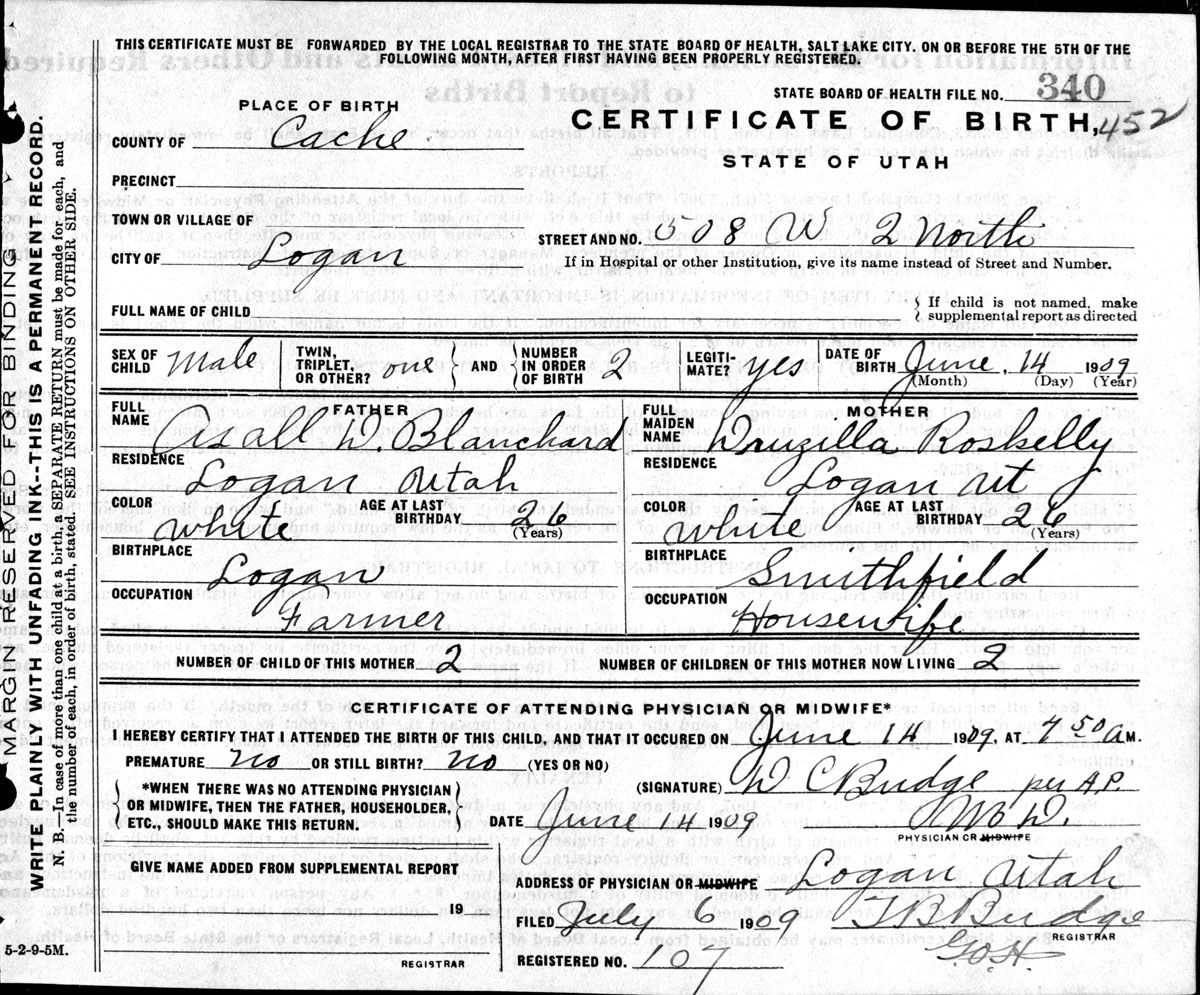 THIS CERTIFICATE MUST BE FORWARDED BY THE LOCAL REGISTRAR TO THE STATE BOARD OF HEALTH, SALT LAKE CITY. ON OR BEFORE THE 5TH OF THE
FOLLOWING MONTH, AFTER FIRST HAVING BEEN PROPERLY REGISTERED.
STATE BOARD OF HEALTH FILE NO. 340
PLACE OF BIRTH
CERTIFICATE OF BIRTH, 452
COUNTY OF Cache
STATE OF UTAH
PRECINCT
TOWN OR VILLAGE OF
STREET AND NO. 508 W 2 North
CITY OF Logan
If in Hospital or other Institution, give its name instead of Street and Number.
FULL NAME OF CHILD
If child is not named, make
supplemental report as directed
SEX OF CHILD Male
TWIN, TRIPLET, OR OTHER? one
AND
NUMBER IN ORDER OF BIRTH 2
LEGITI- MATE? yes
DATE OF BIRTH June, 14 1909
(Month) (Day) (Year)
FATHER
FULL NAME W. Blanchard
RESIDENCE
Logan Utah
COLOR White
AGE AT LAST BIRTHDAY 26
(Years)
BIRTHPLACE
Logan
OCCUPATION
Farmer
MOTHER
FULL MAIDEN NAME Druzilla Roskelly
RESIDENCE
Logan Ut
COLOR White
AGE AT LAST BIRTHDAY 26
(Years)
BIRTHPLACE
Smithfield
OCCUPATION
Housewife
NUMBER OF CHILD OF THIS MOTHER 2
NUMBER OF CHILDREN OF THIS MOTHER NOW LIVING 2
CERTIFICATE OF ATTENDING PHYSICIAN OR MIDWIFE*
I HEREBY CERTIFY THAT I ATTENDED THE BIRTH OF THIS CHILD, AND THAT IT OCCURED ON June 14 1909, AT 7 50 A M.
PREMATURE No OR STILL BIRTH? No (YES OR NO)
(SIGNATURE) W C Budge per A.P.
*WHEN THERE WAS NO ATTENDING PHYSICIAN
OR MIDWIFE, THEN THE FATHER, HOUSEHOLDER,
ETC., SHOULD MAKE THIS RETURN.
DATE June 14 1909
PHYSICIAN OR MIDWIFE
GIVEN NAME ADDED FROM SUPPLEMENTAL REPORT
ADDRESS OF PHYSICIAN OR MIDWIFE Logan Utah
19
FILED July 6 1909 T B Budge
REGISTRAR
REGISTRAR
REGISTERED NO. 107
5-2-9-5M.
MARGIN RESERVED FOR BINDING
WRITE PLAINLY WITH UNFADING INK--THIS IS A PERMANENT RECORD.
N. B.--In case of more than one child at a birth, a SEPARATE RETURN must be made for each, and
the number of each, in order of birth, stated. SEE INSTRUCTIONS ON OTHER SIDE.